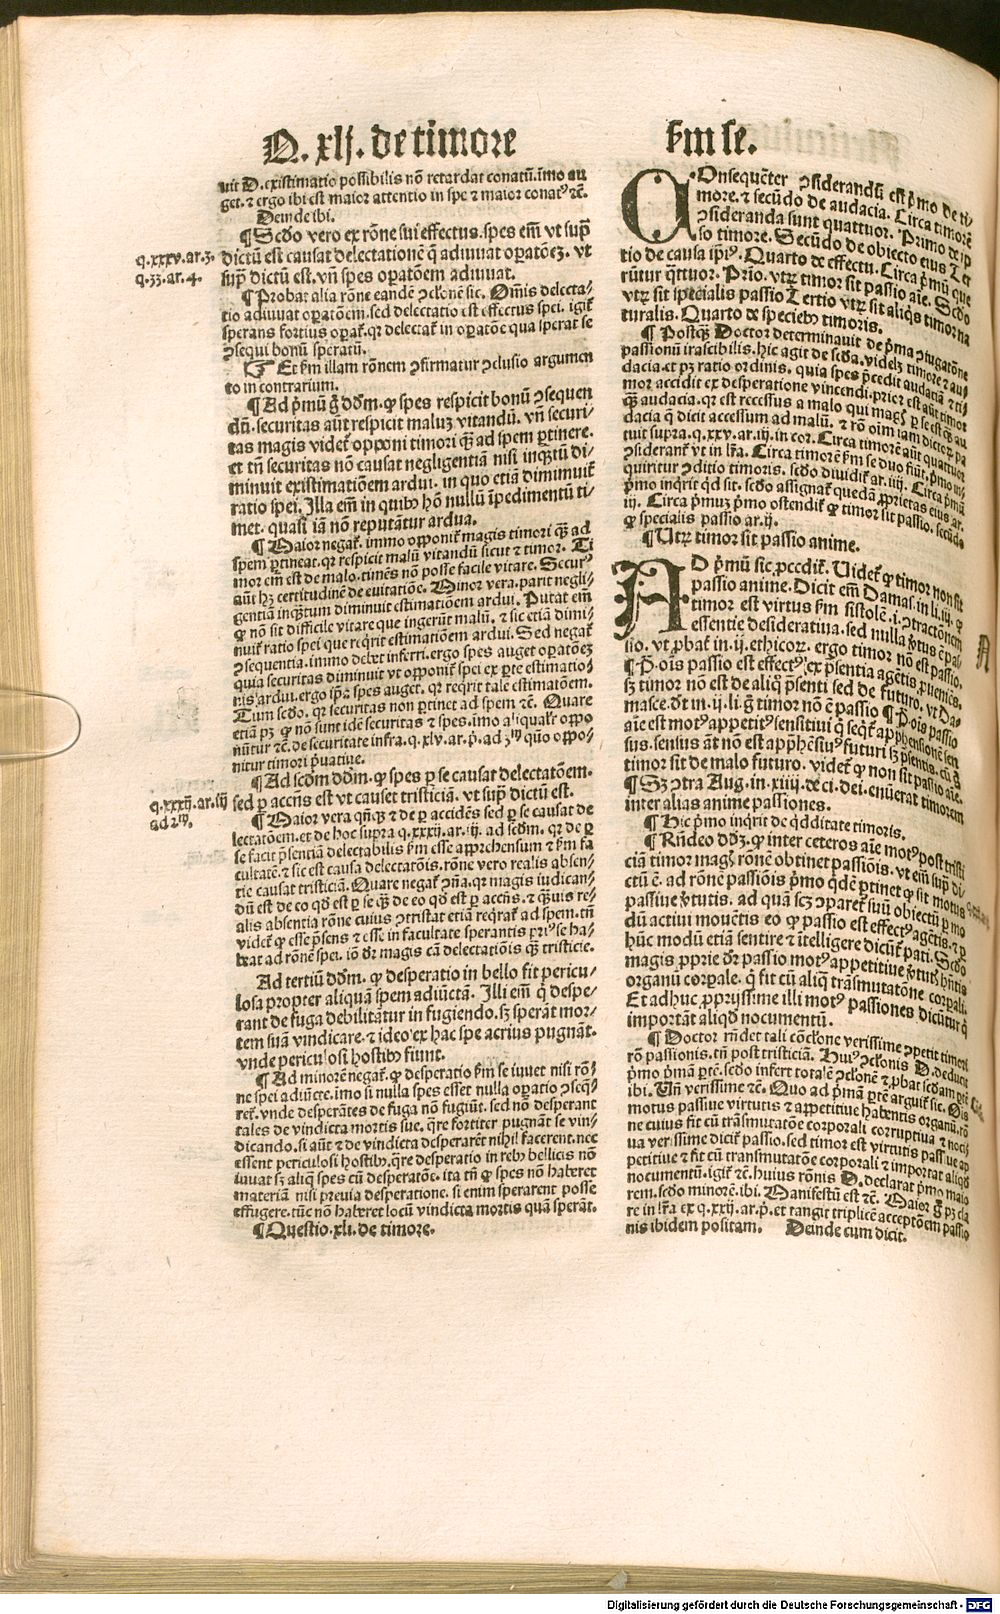 Q. xlj. de timore
s̄m se.
uit D. existimatio possibilis nō retardat conatū. imo au
get. ⁊ ergo ibi est maior attentio in spe ⁊ maior conatꝰ ⁊c̄.
Deinde ibi.
¶ Scdo vero ex rōne sui effectus. spes em̄ vt supͣ
q. xxxv. ar. 3.
dictū est causat delectationē q̄ adiuuat oꝑatōeꝫ. vt
q. 33. ar. 4.
supͣ dictū est. vn̄ spes oꝑatōem adiuuat.
¶ Probat alia rōne eandē ↄclonē sic. Om̄is delecta-
tio adiuuat oꝑatōem. sed delectatio est effectus spei. igit̄
sperans fortius oꝑat̄. qꝛ delectat̄ in oꝑatōe qua sperat se
ↄsequi bonū speratū.
☞ Et s̄m illam rōnem ↄfirmatur ↄclusio argumen
to in contrarium.
¶ Ad p̄mū g̊ dd̄m. ꝙ spes respicit bonū ↄsequen
dū. securitas aūt respicit maluꝫ vitandū. vn̄ securi-
tas magis videt̄ opponi timori qꝫ̄ ad spem ꝑtinere.
et tn̄ securitas nō causat negligentiā nisi inqꝫ̄tū di-
minuit existimatiōem ardui. in quo etiā diminuit̄
ratio spei. Illa em̄ in quibꝰ hō nullū īpedimentū ti-
met. quasi iā nō reputātur ardua.
¶ Maior negat̄. immo opponit̄ magis timori qꝫ̄ ad
spem ꝑtineat. qꝛ respicit malū vitandū sicut ⁊ timor. Ti
mor em̄ est de malo. timēs nō posse facile vitare. Securꝰ
aūt hꝫ certitudinē de euitatiōe. Minor vera. parit negli-
gentiā inqꝫ̄tum diminuit estimatiōem ardui. Putat em̄
ꝙ nō sit difficile vitare que ingerūt malū. ⁊ sic etiā dimi-
nuit̄ ratio spei que reqrit estimatiōem ardui. Sed negat̄
ↄsequentia. immo debet inferri. ergo spes auget oꝑatōeꝫ
quia securitas diminuit vt opponit̄ spei ex ꝑte estimatio-
nis ardui. ergo ip̄a spes auget. qꝛ reqrit talē estimatōem.
Tum scdo. qꝛ securitas non ꝑtinet ad spem ⁊c̄. Quare
etiā pꝫ ꝙ nō sunt idē securitas ⁊ spes. imo aliqualr̄ oppo
nūtur ⁊c̄. de securitate infra. q. xlv. ar. p̄. ad 3ᵐ quō oppo-
nitur timori pͥuatiue.
¶ Ad scdm dd̄m. ꝙ spes ꝑ se causat delectatōem.
q. xxxij. ar. iij
sed ꝑ accn̄s est vt causet tristiciā. vt supͣ dictū est.
ad 2ᵐ.
¶ Maior vera qn̄qꝫ ⁊ de ꝑ accidēs sed ꝑ se causat de
lectatōem. et de hoc supra q. xxxij. ar. iij. ad scdm. qꝛ de ꝑ
se facit p̄sentiā delectabilis s̄m esse apprehensum ⁊ s̄m fa
cultatē. ⁊ sic est causa delectatōis. rōne vero realis absen-
tie causat tristiciā. Quare negat̄ ↄn̄a. qꝛ magis iudican-
dū est de eo qd̄ est ꝑ se qꝫ̄ de eo qd̄ est ꝑ accn̄s. ⁊ qꝫ̄uis re-
alis absentia rōne cuius ↄtristat etiā reqrat̄ ad spem. tn̄
videt̄ ꝙ esse p̄sens ⁊ esse in facultate sperantis priꝰ se ha-
beat ad rōnē spei. iō dr̄ magis cā delectatiōis qꝫ̄ tristicie.
Ad tertiū dd̄m. ꝙ desperatio in bello fit pericu-
losa propter aliquā spem adiūctā. Illi em̄ q̄ despe-
rant de fuga debilitātur in fugiendo. sꝫ sperāt mor-
tem suā vindicare. ⁊ ideo ex hac spe acrius pugnāt.
vnde periculosi hostibꝰ fiunt.
¶ Ad minorē negat̄. ꝙ desperatio s̄m se iuuet nisi rō-
ne spei adiūcte. imo si nulla spes esset nulla oꝑatio ↄseq̄-
ret̄. vnde desperātes de fuga nō fugiūt. sed nō desperant
tales de vindicta mortis sue. q̄re fortiter pugnāt se vin-
dicando. si aūt ⁊ de vindicta desperarēt nihil facerent. nec
essent periculosi hostibꝰ. q̄re desperatio in rebꝰ bellicis nō
iuuat sꝫ aliq̄ spes cū desperatōe. ita tn̄ ꝙ spes nō haberet
materiam nisi preuia desperatione. si enim sperarent posse
effugere. tūc nō haberet locū vindicta mortis quā sperāt.
¶ Questio. xli. de timore.
COnsequēter ↄsiderandū est p̄mo de ti-
more. ⁊ secūdo de audacia. Circa timorē
ↄsideranda sunt quattuor. Primo de ip
so timore. Secūdo de obiecto eius Ter
tio de causa ipiꝰ. Quarto de effectu. Circa p̄mū que
rūtur q̄ttuor. Prīo. vtꝝ timor sit passio aīe. Scdo
vtꝝ sit specialis passio Tertio vtꝝ sit aliqs timor na
turalis. Quarto de speciebꝰ timoris.
¶ Postqꝫ̄ Doctor determinauit de p̄ma ↄiugatōne
passionū irascibilis. hic agit de scda. videlꝫ timore ⁊ au
dacia. et pꝫ ratio ordinis. quia spes p̄cedit audaciā ⁊ ti
mor accidit ex desperatione vincendi. prior est aūt timor
qꝫ̄ audacia. qꝛ est recessus a malo qui magꝭ ꝑ se est qꝫ̄ au
dacia q̄ dicit accessum ad malū. ⁊ rō oīm iam dictoꝝ pa
tuit supra. q. xxv. ar. iij. in cor. Circa timorē aūt quattuor
ↄsiderant̄ vt in lr̄a. Circa timorē s̄m se duo fiūt. p̄mo in-
quiritur ↄditio timoris. scdo diuidit̄ ar. iiij. Circa p̄mū
p̄mo inqrit qd̄ sit. scdo assignat̄ quedā ꝓprietas eius ar.
iij. Circa p̄muꝫ p̄mo ostendit̄ ꝙ timor sit passio. secūdo
ꝙ specialis passio ar. ij.
¶ Vtꝝ timor sit passio anime.
AD p̄mū sic ꝓcedit̄. Videt̄ ꝙ timor non sit
passio anime. Dicit em̄ Damas. in li. iij. ꝙ
timor est virtus s̄m sistolē. i. ↄtractōnem
essentie desideratiua. sed nulla v̄tus ē pas-
sio. vt ꝓbat̄ in. ij. ethicoꝝ. ergo timor nō est passio.
¶ P̄. oīs passio est effectꝰ ex p̄sentia agētis ꝓueniēs.
sꝫ timor nō est de aliq̊ p̄senti sed de futuro. vt Da-
masce. dt̄ in. ij. li. g̊ timor nō ē passio ¶ P̄. oīs passio
aīe est motꝰ appetitꝰ sensitiui q̄ seqt̄ apprehensionē sen
sus. sensus aūt nō est app̄hēsiuꝰ futuri sꝫ p̄sentis. cū g̊
timor sit de malo futuro. videt̄ ꝙ non sit passio aīe.
¶ Sꝫ ↄtra Aug. in. xiiij. de ci. dei. enūerat timorem
inter alias anime passiones.
¶ Hic p̄mo inqrit de qdditate timoris.
¶ Rn̄deo ddꝫ. ꝙ inter ceteros aīe motꝰ post tristi
ciā timor magꝭ rōnē obtinet passiōis. vt em̄ supͣ di-
ctū ē. ad rōnē passiōis p̄mo qdē ꝑtinet ꝙ sit motus
passiue v̄tutis. ad quā scꝫ ↄparet̄ suū obiectū ꝑ mo
dū actiui mouētis eo ꝙ passio est effectꝰ agētis. ⁊ ꝑ
hūc modū etiā sentire ⁊ ītelligere dicūt̄ pati. Scdo
magis ꝓprie dr̄ passio motꝰ appetitiue v̄tutꝭ hn̄tis
organū corꝑale. q̄ fit cū aliq̄ trāsmutatōne corꝑali.
Et adhuc ꝓprijssime illi motꝰ passiones dicūtur q̄
important aliqd̄ nocumentū.
¶ Doctor rn̄det tali cōclōne verissime ↄpetit timori
rō passionis. tn̄ post tristiciā. Huiꝰ ↄclonis D. deducit
p̄mo p̄mā ꝑtē. scdo infert totalē ↄclonē ⁊ ꝓbat scdam ꝑtē
ibi. Vn̄ verissime ⁊c̄. Quo ad p̄mā ꝑtē arguit̄ sic. Oīs
motus passiue virtutis ⁊ appetitiue habentis organū. rō
ne cuius fit cū trāsmutatōe corporali corruptiua ⁊ nociꝫ
ua verissime dicit̄ passio. sed timor est virtutis passiue ap
petitiue ⁊ fit cū transmutatōe corporali ⁊ importat aliqd̄
nocumentū. igit̄ ⁊c̄. huius rōnis D. declarat p̄mo maio
rem. scdo minorē. ibi. Manifestū est ⁊c̄. Maior g̊ pꝫ cla
re in lr̄a ex q. xxij. ar. p̄. et tangit triplicē acceptōem passio
nis ibidem positam. Deinde cum dicit.
Digitalisierung gefördert durch die Deutsche Forschungsgemeinschaft - DFG